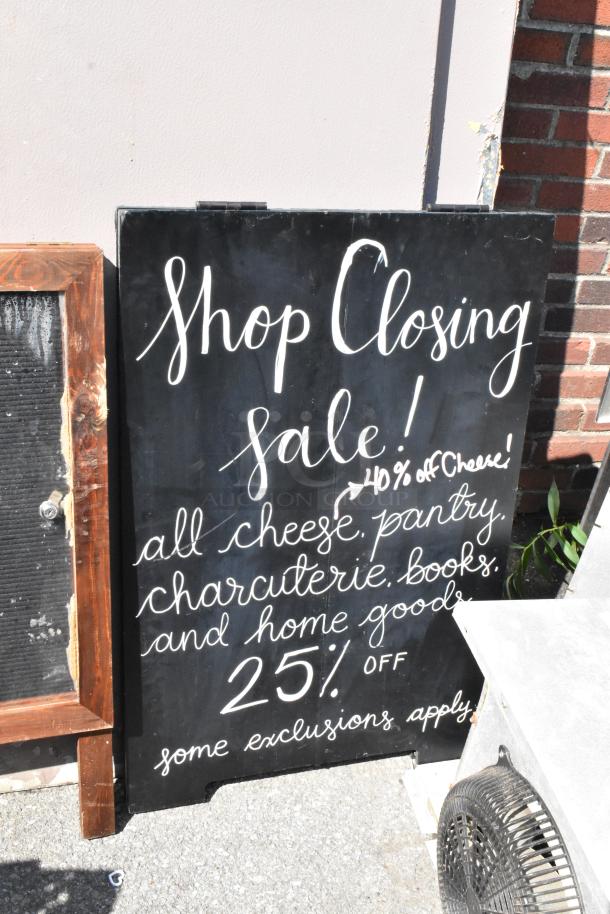 Shop Closing
sale!
40% off Cheese!
all cheese, pantry,
charcuterie, books,
and home goods
25% OFF
some exclusions apply
AUCTION GROUP